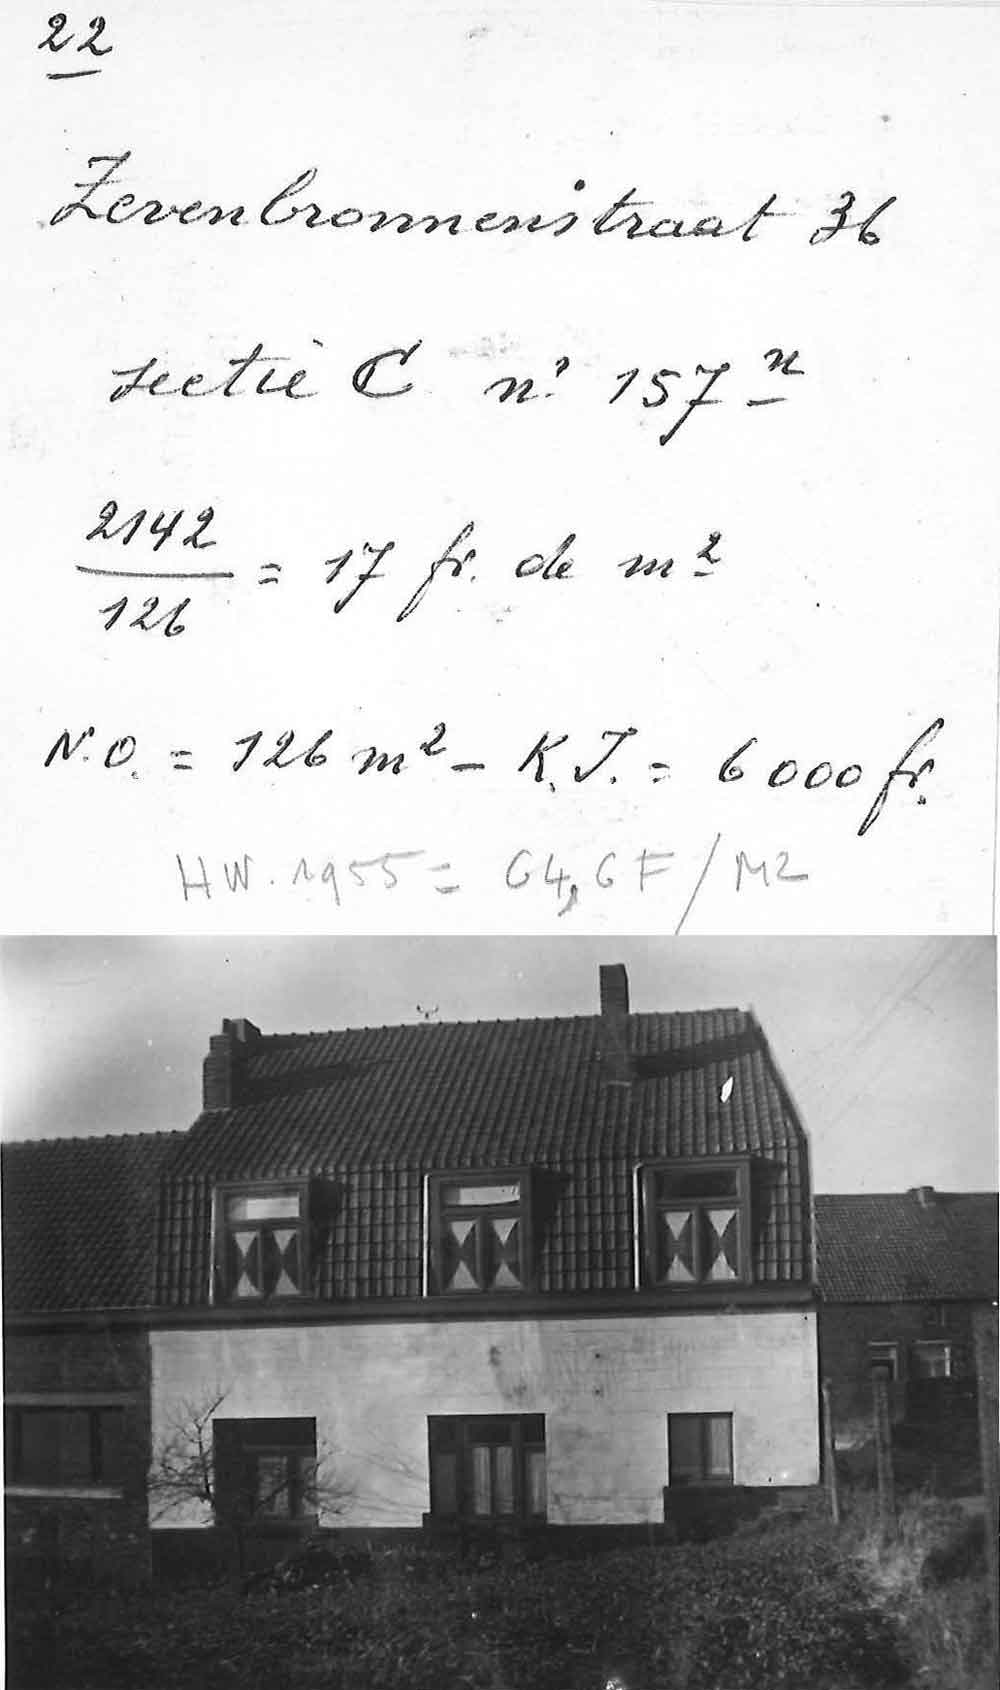 22
Zevenbronnenstraat 36
sectie C n° 157 n
2142
126
= 17 fr. de m2
N.O. = 126 m2 - K.I. = 6000 fr.
HW. 1955 = 64,6 F/M2